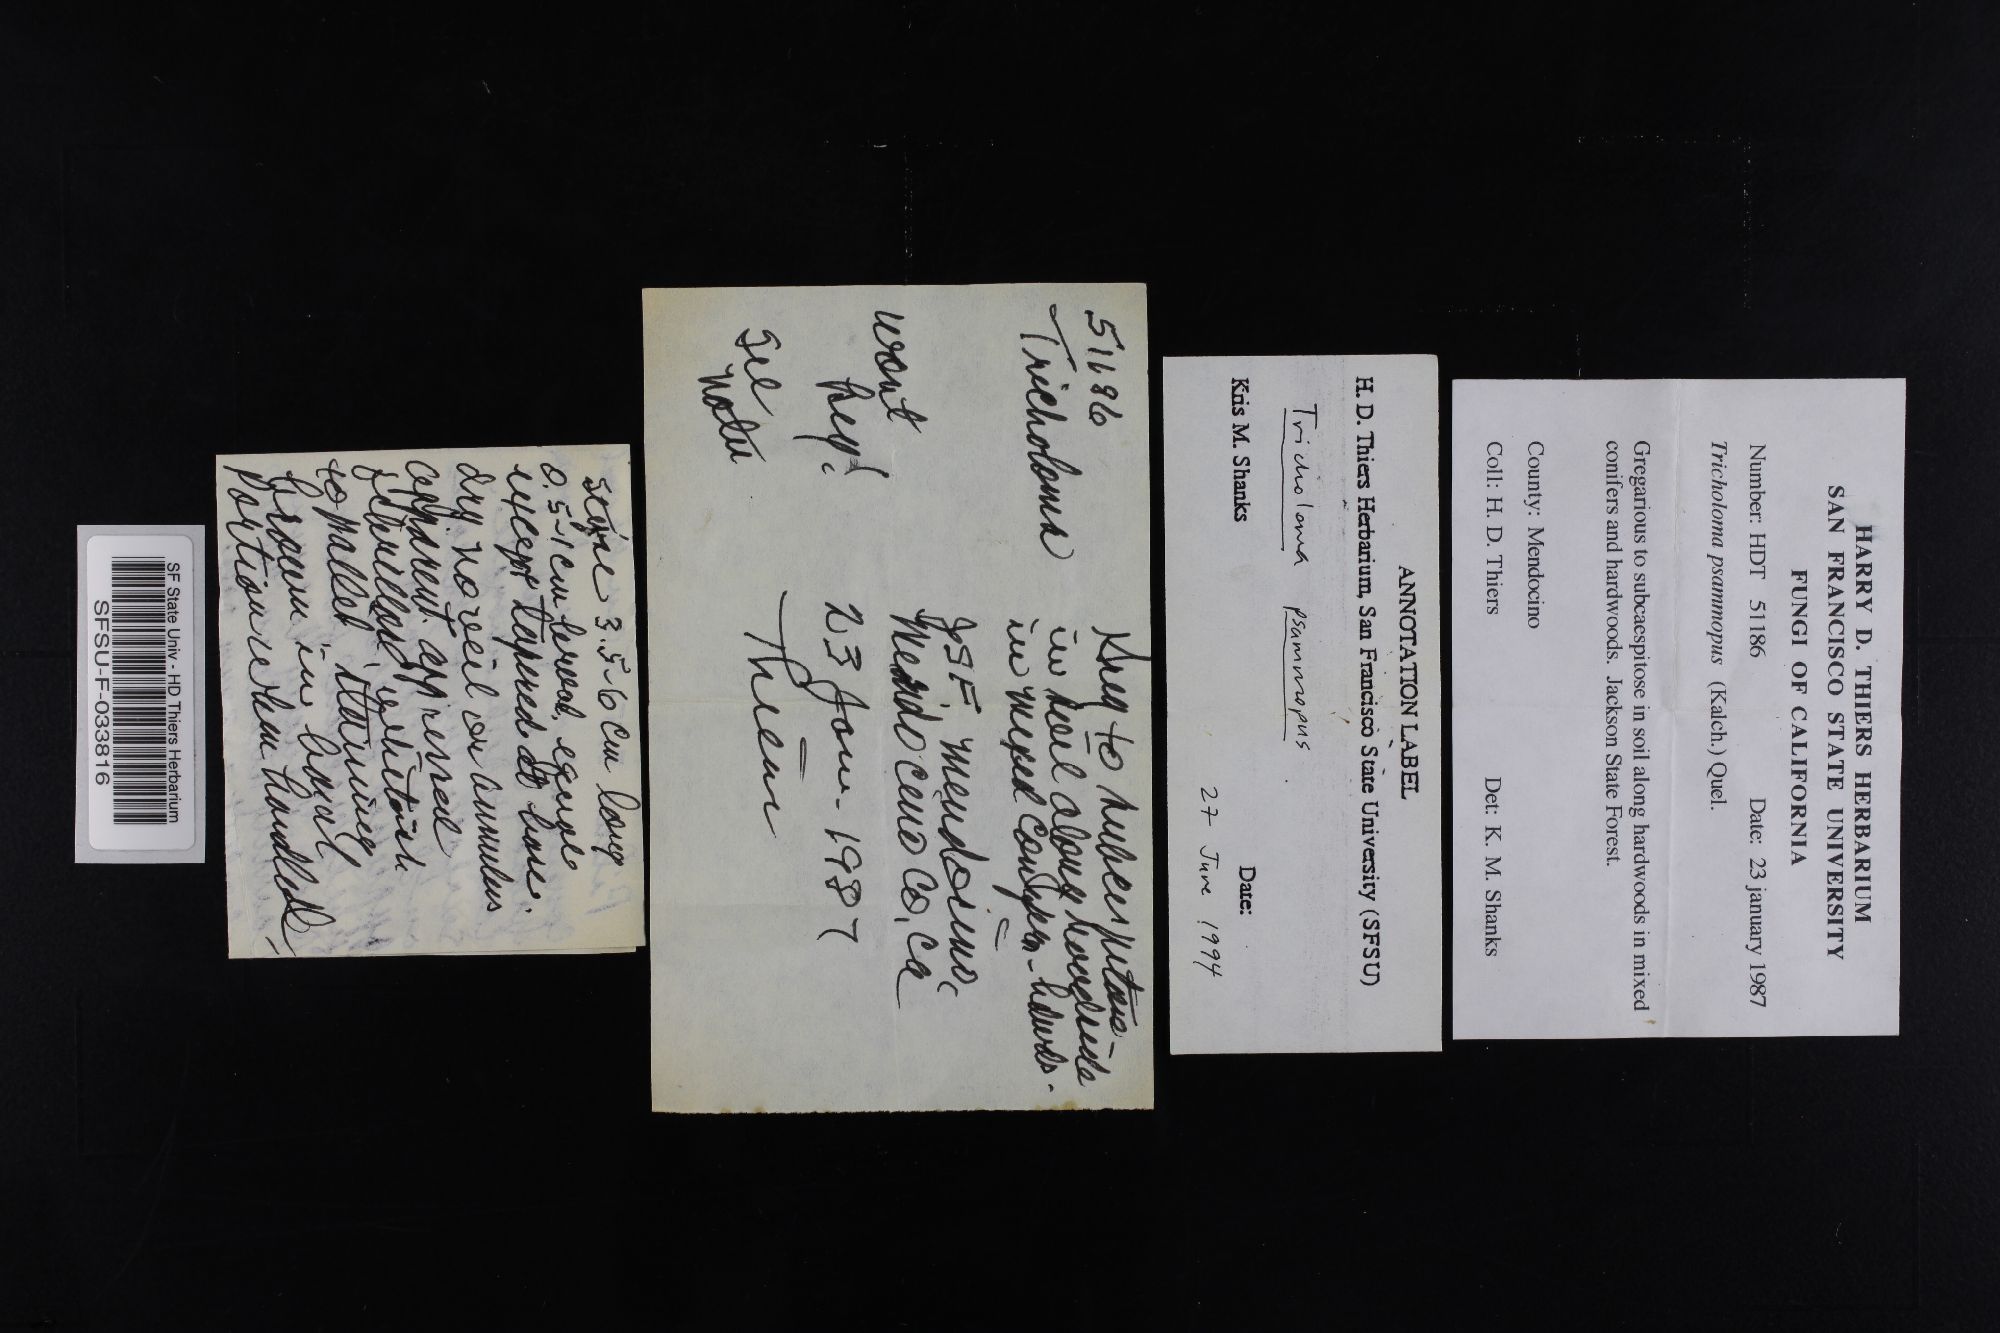 HARRY D. THIERS HERBARIUM
SAN FRANCISCO STATE UNIVERSITY
FUNGI OF CALIFORNIA
Number: HDT 51186 Date: 23 january 1987
Tricholoma psammopus (Kalch.) Quel.
Gregarious to subcaespitose in soil along hardwoods in mixed
conifers and hardwoods. Jackson State Forest.
County: Mendocino
Coll: H. D. Thiers Det: K. M. Shanks
ANNOTATION LABEL
H. D. Thiers Herbarium, San Francisco State University (SFSU)
Tricholoma psammopus
Kris M. Shanks Date:
27 June 1994
51186
Tricholoma
Greg to subcespitose
in soil along
in mixed conifers - hdwds.
JSF, Mendocino,
Mendocino Co, Ca
want
23 Jan - 1987
Thiers
See
Notes
stipe 3.5-6 cm long
0.5-1 cm broad, equal
except tapered at base.
dry no veil or annulus
apparent. appressed
fibrillose,
to pallid, staining
brown in basal
portion when handled.
SF State Univ - HD Thiers Herbarium
SFSU-F-033816